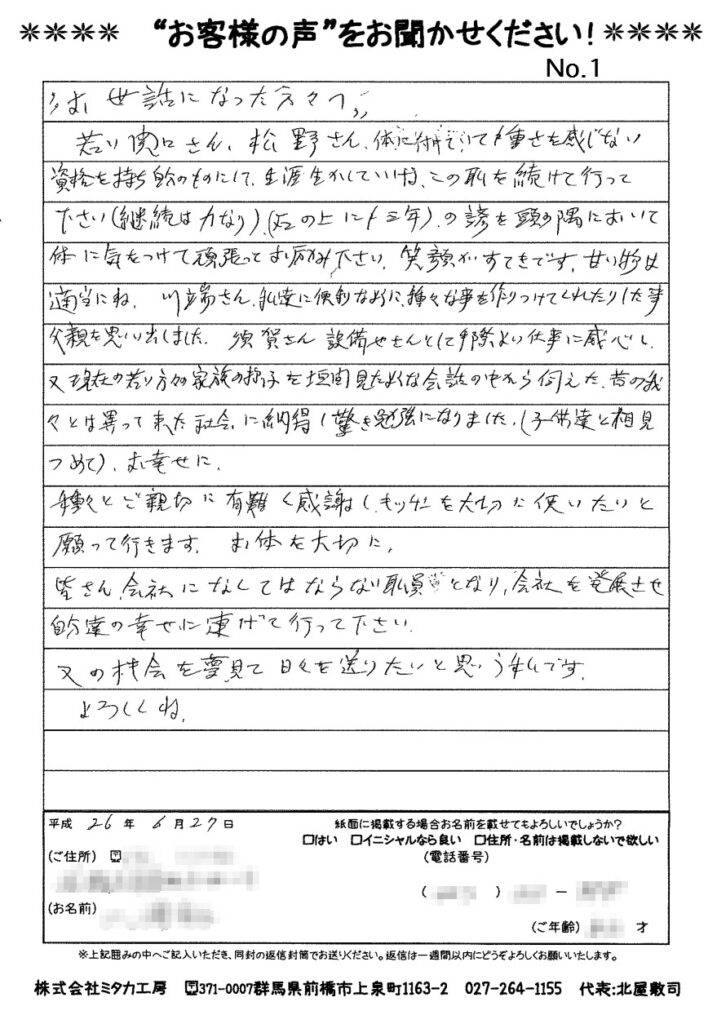 ＊＊＊＊ “お客様の声”をお聞かせください！＊＊＊＊
No.1
〃お世話になった方々へ〃
若い関口さん、松野さん、体に付いて重さを感じない
資格を持ち自分のものにして、生涯生かしていける、この職を続けて行って
下さい(継続は力なり)、(石の上にも三年)、の諺を頭の隅において
体に気をつけて頑張ってお励み下さい。笑顔がすてきです。甘い物は
適当にね。川端さん、私達に便利なように、種々な事を作りつけてくれたりした事
父親を思い出しました。須賀さん設備やさんとして手際よい仕事に感心し、
又現在の若い方の家族の様子を垣間見たような会話の中から伺えた、昔の我
々とは異って来た社会に納得し驚き勉強になりました。(子供達と相見
つめて)、お幸せに。
種々とご親切に有難く感謝し、キッチンを大切に使いたいと
願って行きます。お体を大切に。
皆さん、会社になくてはならない職員となり、会社を発展させ
自分達の幸せに連げて行って下さい。
又の機会を夢見て日々を送りたいと思う私です。
よろしくね。
平成 26 年 6 月 27 日
紙面に掲載する場合お名前を載せてもよろしいでしょうか？
□はい □イニシャルなら良い □住所・名前は掲載しないで欲しい
(ご住所)
(電話番号)
( ) －
(お名前)
(ご年齢) 才
※上記囲みの中へご記入いただき、同封の返信封筒でお送りください。返信は一週間以内にどうぞよろしくお願いいたします。
株式会社ミタカ工房 〒371-0007群馬県前橋市上泉町1163-2 027-264-1155 代表:北屋敷司